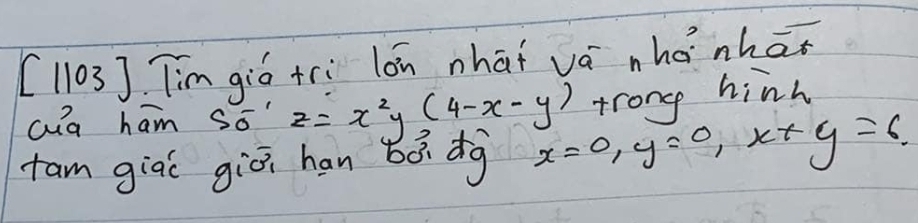 [1103]. Tìm giá trị lớn nhất và nhỏ nhất
của hàm số z = x²y (4-x-y) trong hình
tam giác giới hạn bởi đg x=0, y=0, x+y=6.